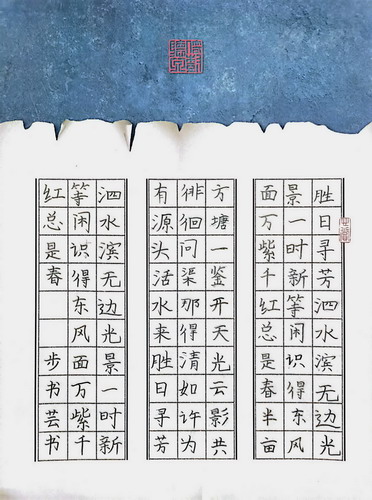 胜日寻芳泗水滨无边光
景一时新等闲识得东风
面万紫千红总是春半亩
方塘一鉴开天光云影共
徘徊问渠那得清如许为
有源头活水来胜日寻芳
泗水滨无边光景一时新
等闲识得东风面万紫千
红总是春 步书芸书